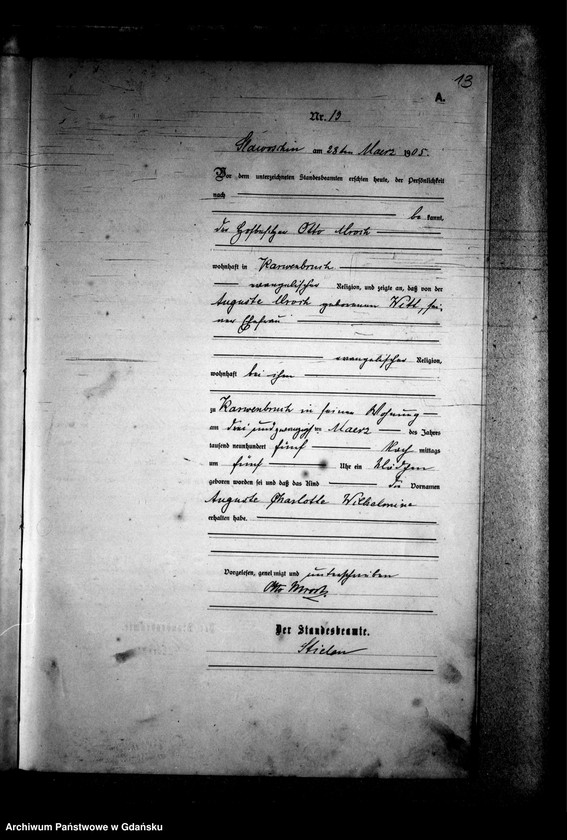 13
A.
Nr. 13
am 23ten Maerz 1905.
Vor dem unterzeichneten Standesbeamten erschien heute, der Persönlichkeit
nach
be kannt,
der Hofbesitzer Otto
wohnhaft in Karwenbruch
evangelischer Religion, und zeigte an, daß von der
Auguste geborenen Witt, sei-
ner Ehefrau
evangelischer Religion,
wohnhaft bei ihm
zu Karwenbruch in seiner Wohnung
am drei und zwanzigsten Maerz des Jahres
tausend neunhundert fünf Nach mittags
um fünf Uhr ein Mädchen
geboren worden sei und daß das Kind die Vornamen
Auguste Charlotte Wilhelmine
erhalten habe.
Vorgelesen, genehmigt und unterschrieben
Otto
Der Standesbeamte.
Archiwum Państwowe w Gdańsku